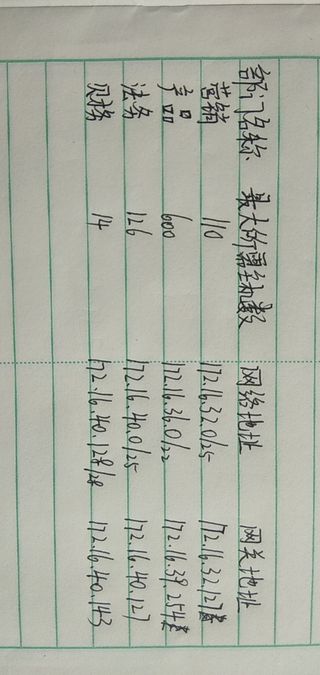 部门名称 最大所需主机数 网络地址 网关地址
营销 110 172.16.32.0/25 172.16.32.127
产品 600 172.16.36.0/22 172.16.39.254
法务 126 172.16.40.0/25 172.16.40.127
财务 14 172.16.40.128/28 172.16.40.143